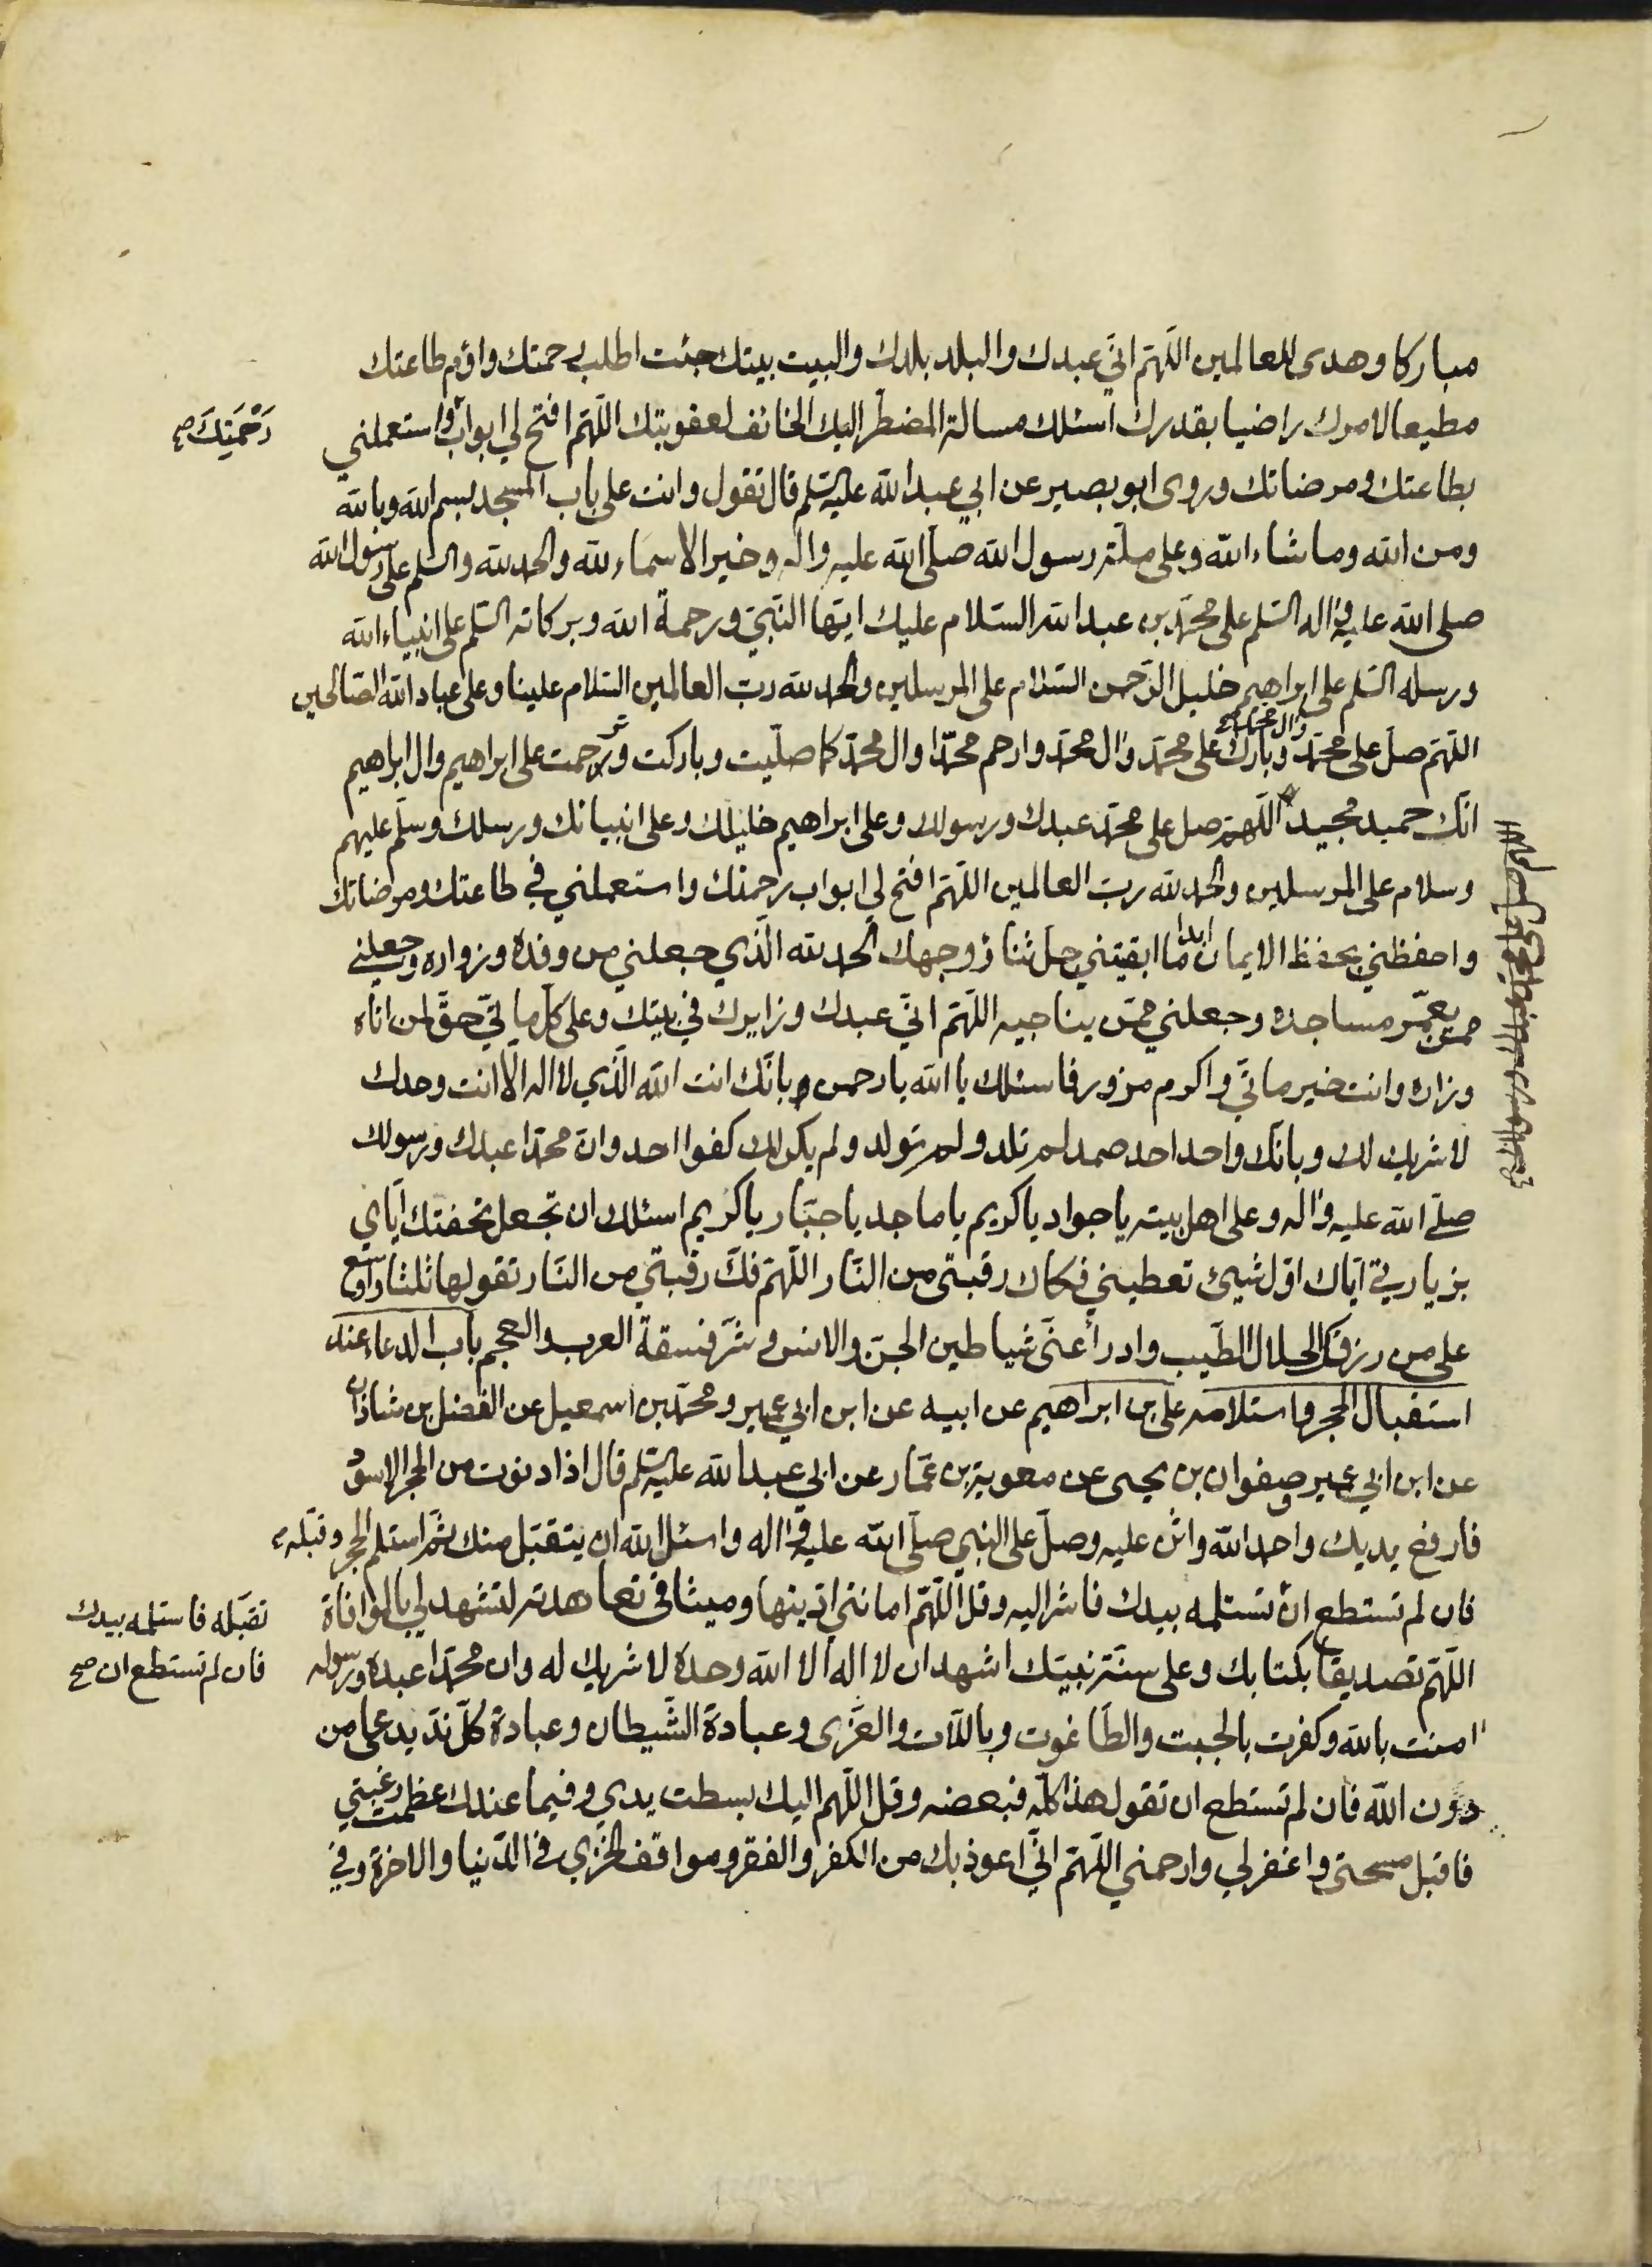 مباركا وهدى للعالمين اللهم اني عبدك والبلد بلدك والبيت بيتك جئت اطلب رحمتك واؤم طاعتك
مطيعا لامرك راضيا بقدرك اسئلك مسالة المضطر اليك الخائف لعقوبتك اللهم افتح لي ابواب واستعملني
رَحْمَتِكَ صح
بطاعتك ومرضاتك وروى ابو بصير عن ابي عبد الله عليه السلم قال تقول وانت على باب المسجد بسم الله وبالله
ومن الله وما شاء الله وعلى ملة رسول الله صلى الله عليه واله وخير الاسماء لله والحمد لله والسلم على رسول الله
صلى الله عليه واله السلم على محمد بن عبد الله السلام عليك ايها النبي ورحمة الله وبركاته السلم على انبياء الله
ورسله السلم على ابراهيم خليل الرحمن السلام على المرسلين والحمد لله رب العالمين السلام علينا وعلى عباد الله الصالحين
وال محمد صح
اللهم صل على محمد وبارك على محمد وال محمد وارحم محمدا وال محمد كما صليت وباركت وترحمت على ابراهيم وال ابراهيم
انك حميد مجيد اللهم صل على محمد عبدك ورسولك وعلى ابراهيم خليلك وعلى انبيائك ورسلك وسلم عليهم
وسلام على المرسلين والحمد لله رب العالمين اللهم افتح لي ابواب رحمتك واستعملني في طاعتك ومرضاتك
واحفظني بحفظ الايمان ابدا ما ابقيتني جل ثناؤ وجهك الحمد لله الذي جعلني من وفده وزواره وجعلني
ممن يعمر مساجده وجعلني ممن يناجيه اللهم اني عبدك وزايرك في بيتك وعلى كل ماتي حق لمن اتاه
وزاره وانت خير ماتي واكرم مزور فاسئلك يا الله يا رحمن وبانك انت الله الذي لا اله الا انت وحدك
لا شريك لك وبانك واحد احد صمد لم تلد ولم تولد ولم يكن لك كفوا احد وان محمدا عبدك ورسولك
صلى الله عليه واله وعلى اهل بيته يا جواد يا كريم يا ماجد يا جبار يا كريم اسئلك ان تجعل تحفتك اياي
بزيارتي اياك اول شيئ تعطيني فكاك رقبتي من النار اللهم فك رقبتي من النار تقولها ثلثا واوسع
على من رزقك الحلال الطيب وادرأ عني شياطين الجن والانس وشر فسقة العرب والعجم باب الدعاء عند
استقبال الحجر واستلامه علي بن ابراهيم عن ابيه عن ابن ابي عمير ومحمد بن اسمعيل عن الفضل بن شاذان
عن ابن ابي عمير وصفوان بن يحيى عن معوية بن عمار عن ابي عبد الله عليه السلم قال اذا دنوت من الحجر الاسود
فارفع يديك واحمد الله واثن عليه وصل على النبي صلى الله عليه واله واسئل الله ان يتقبل منك ثم استلم الحجر وقبله
فان لم تستطع ان تستلمه بيدك فاشر اليه وقل اللهم امانتي اديتها وميثاقي تعاهدته لتشهد لي بالموافاة
تقبله فاستلمه بيدك
فان لم تستطع ان صح
اللهم تصديقا بكتابك وعلى سنة نبيك اشهد ان لا اله الا الله وحده لا شريك له وان محمدا عبده ورسوله
امنت بالله وكفرت بالجبت والطاغوت وباللات والعزى وعبادة الشيطان وعبادة كل ند يدعى من
دون الله فان لم تستطع ان تقول هذا كله فبعضه وقل اللهم اليك بسطت يدي وفيما عندك عظمت رغبتي
فاقبل مسحتي واغفر لي وارحمني اللهم اني اعوذ بك من الكفر والفقر ومواقف الخزي في الدنيا والاخرة وفي